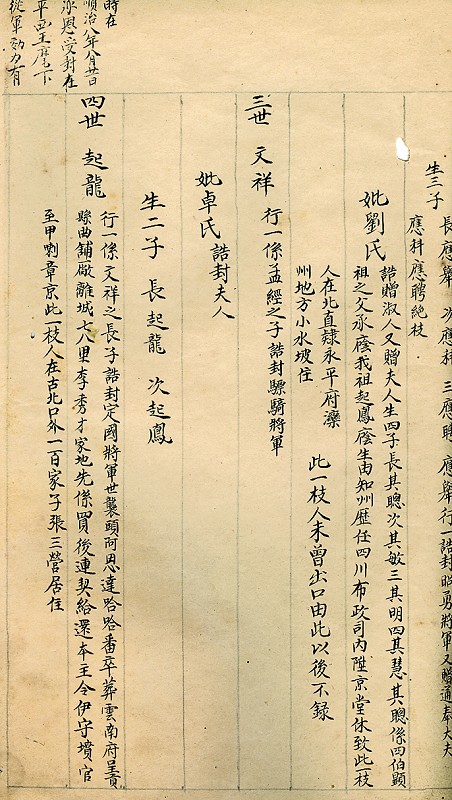 生三子
長應舉 次應科 三應聘 應舉行一誥封昭勇將軍又贈通奉大夫
應科應聘絶枝
妣劉氏
誥贈淑人又贈夫人生四子長其聰次其敏三其明四其慧其聰係四伯顯
祖之父承廕我祖起鳳廕生由知州歷任四川布政司內陞京堂休致此一枝
人在北直隸永平府灤
州地方小水坡住
此一枝人未曾出口由此以後不録
三世 文祥
行一係孟經之子誥封驃騎將軍
妣卓氏 誥封夫人
生二子 長起龍 次起鳳
四世 起龍
行一係文祥之長子誥封定國將軍世襲頭阿恩達哈哈番卒葬雲南府呈貢
縣曲舖一廠離城七八里李秀才家地先係買後連契給還本主令伊守墳官
至甲喇章京此一枝人在古北口外一百家子張三營居住
時在
順治八年八月廿日
承恩受封在
平西王麾下
從軍効力有